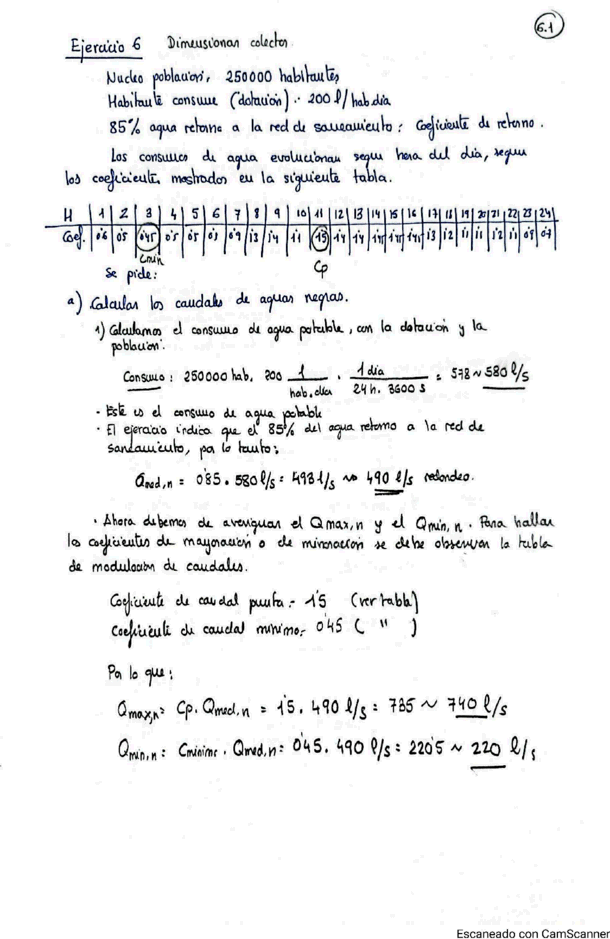 6.1
Ejercicio 6 Dimensionar colector
Nucleo población, 250000 habitantes
Habitante consume (dotación).- 200 l/hab.día
85% agua retorna a la red de saneamiento: Coeficiente de retorno.
Los consumos de agua evolucionan segun hora del día, segun
los coeficiente, mostrados en la siguiente tabla.
H 1 2 3 4 5 6 7 8 9 10 11 12 13 14 15 16 17 18 19 20 21 22 23 24
Coef. 0'6 0'5 0'45 0'5 0'5 0'9 1'3 1'4 1'1 1'5 1'4 1'4 1'3 1'2 1'1 1'1 1'2 1'1
Cmin
Se pide: Cp
a) Calcular los caudales de aguas negras.
1) Calculamos el consumo de agua potable, con la dotación y la
población:
Consumo: 250000 hab. 200 l/hab.día . 1 día/24 h. 3600 s = 578 ~ 580 l/s
· Este es el consumo de agua potable
· El ejercicio indica que el 85% del agua retorna a la red de
saneamiento, por lo tanto:
Qmed,n = 0'85. 580 l/s = 493 l/s ~ 490 l/s redondeo.
· Ahora debemos de averiguar el Qmax,n y el Qmin,n. Para hallar
los coeficientes de mayoración o de minoración se debe observar la tabla
de modulación de caudales.
Coeficiente de caudal punta.- 1'5 (ver tabla)
Coeficiente de caudal mínimo.- 0'45 ( " )
Por lo que:
Qmax,n = Cp. Qmed,n = 1'5. 490 l/s = 735 ~ 740 l/s
Qmin,n = Cminimo . Qmed,n = 0'45. 490 l/s = 220'5 ~ 220 l/s
Escaneado con CamScanner